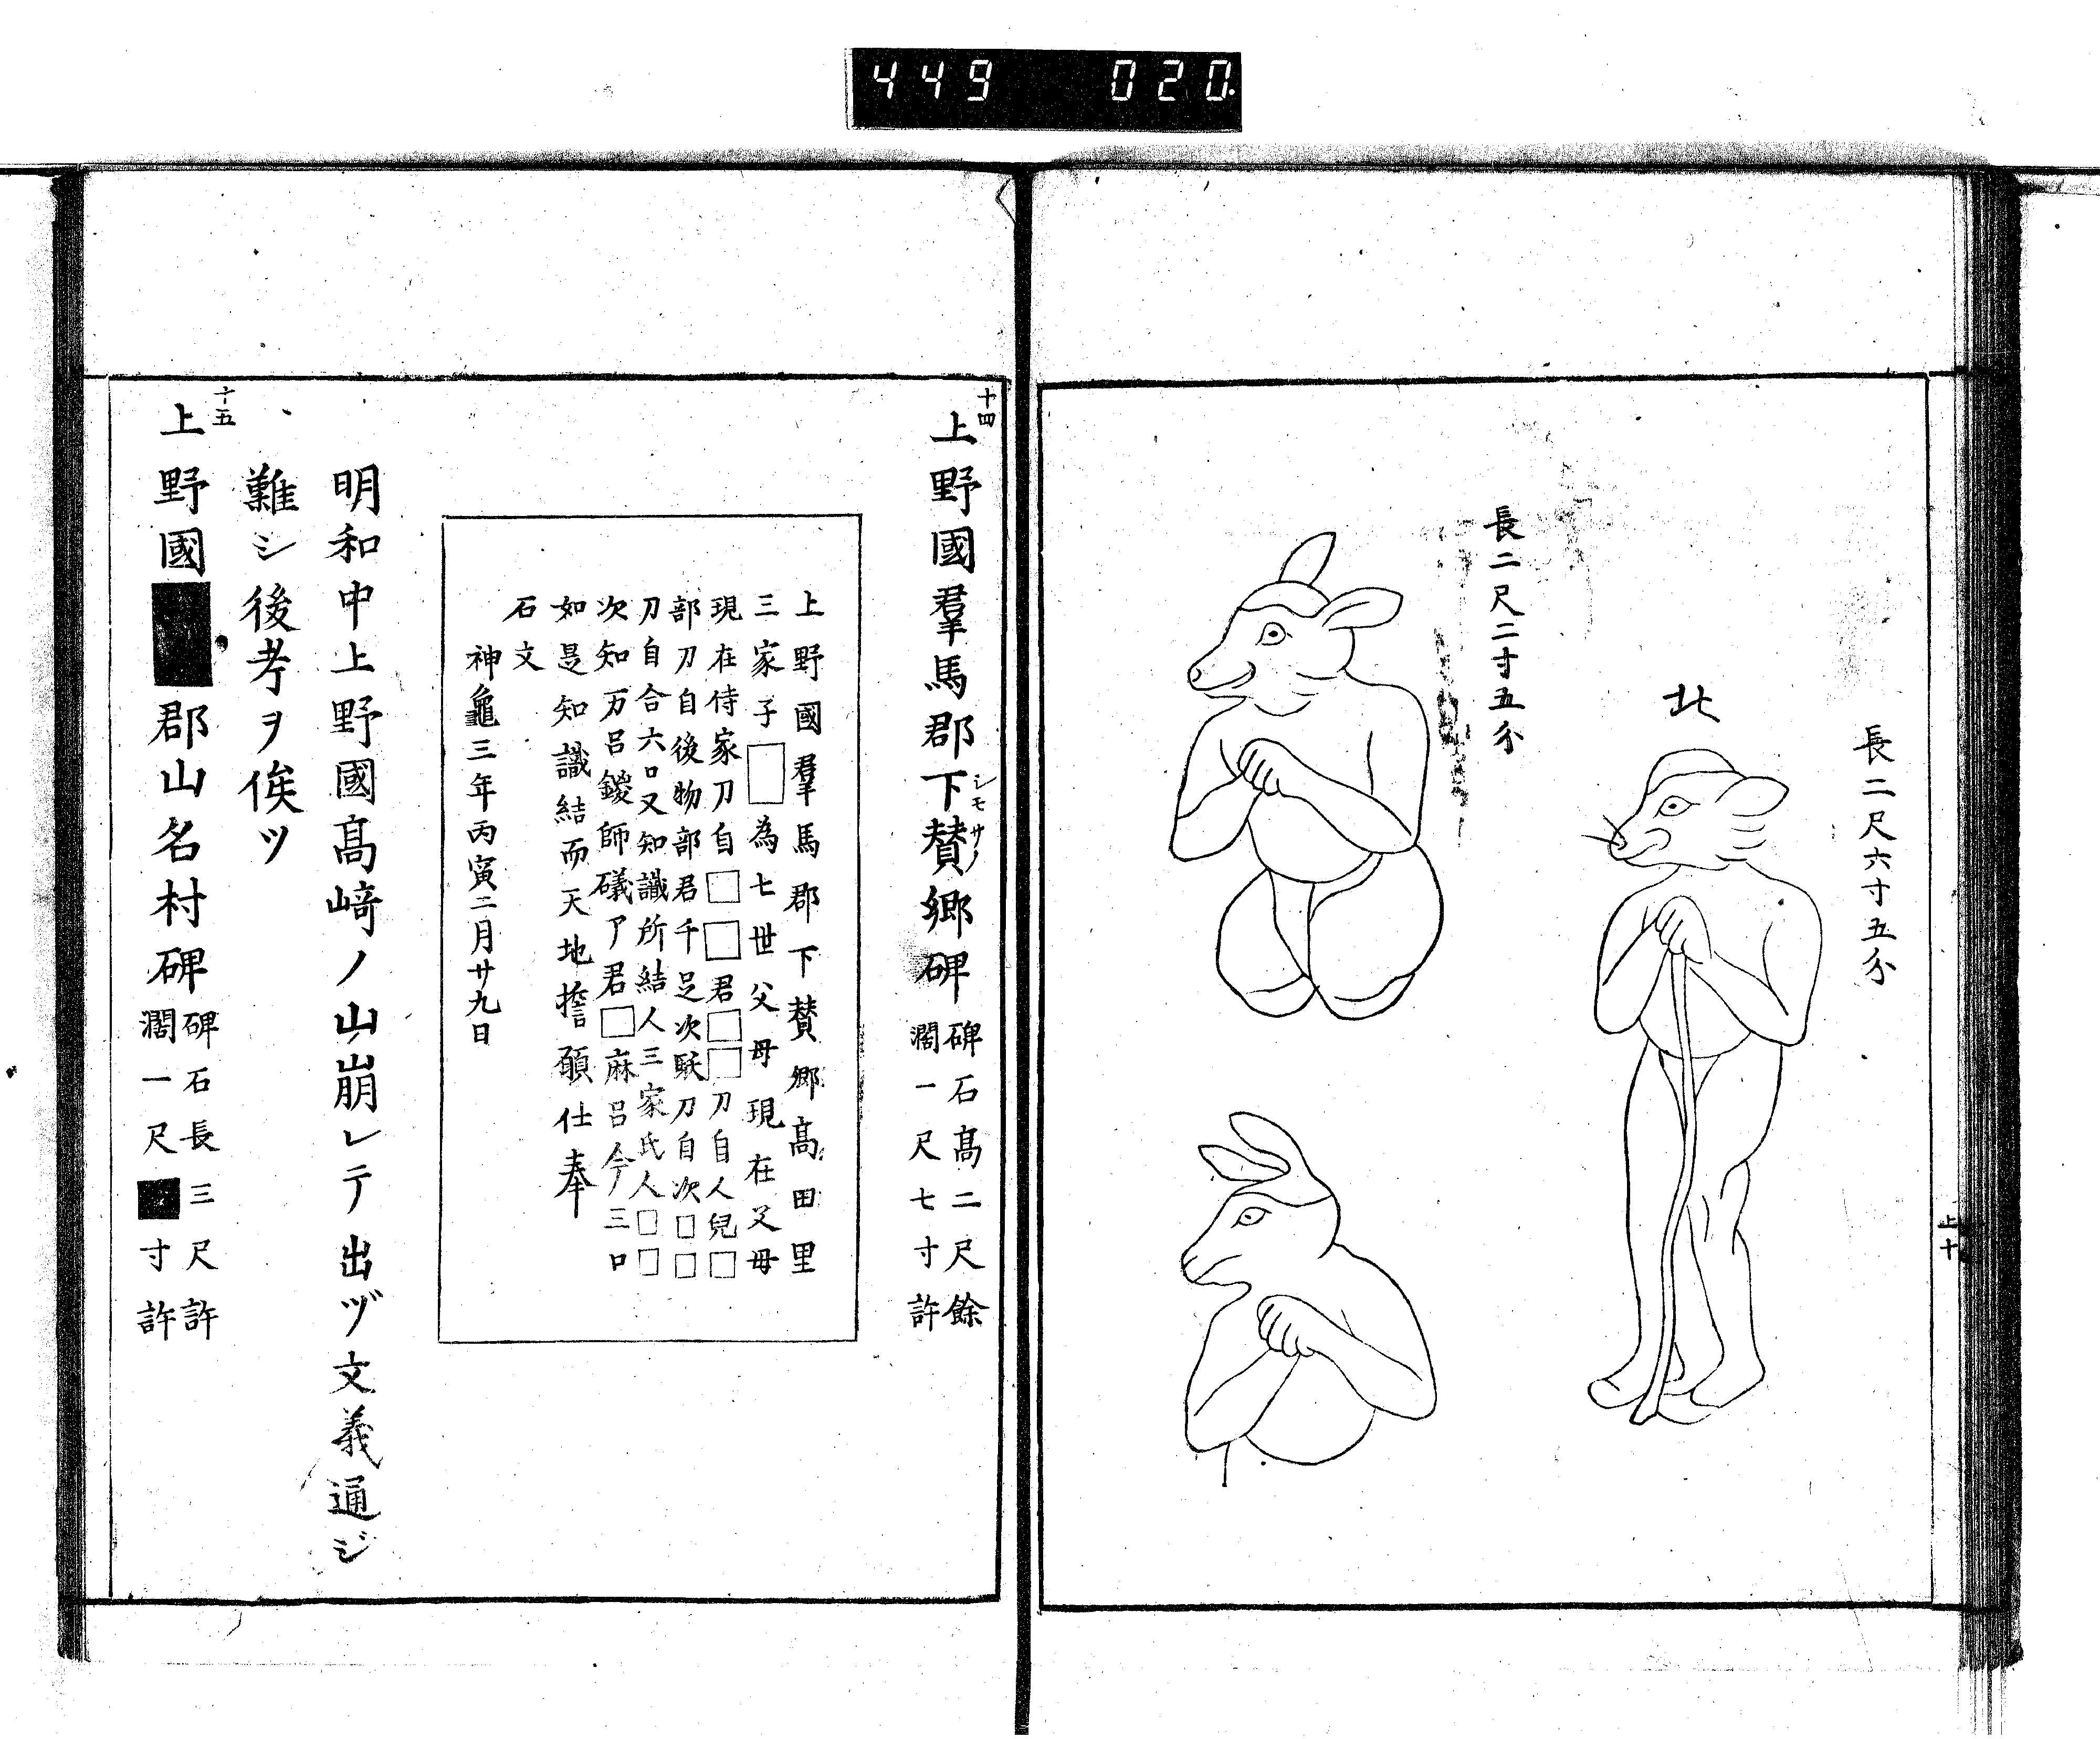 449 020.
長二尺六寸五分
北
長二尺二寸五分
上十
十四
上野國羣馬郡下賛郷碑
シモサノ
碑石髙二尺餘
濶一尺七寸許
上野國羣馬郡下賛郷髙田里
三家子□為七世父母現在父母
現在侍家刀自□□君□□刀自人兒□
部刀自後物部君千足次𫆏刀自次□□
刀自合六口又知識所結人三家氏人□□
次知万呂鍐師礒了君□麻呂今三口
如是知識結而天地擔願仕奉
石文
神龜三年丙寅二月廿九日
明和中上野國髙﨑ノ山崩レテ出ヅ文義通ジ
難シ後考ヲ俟ツ
十五
上野國■郡山名村碑
碑石長三尺許
濶一尺■寸許